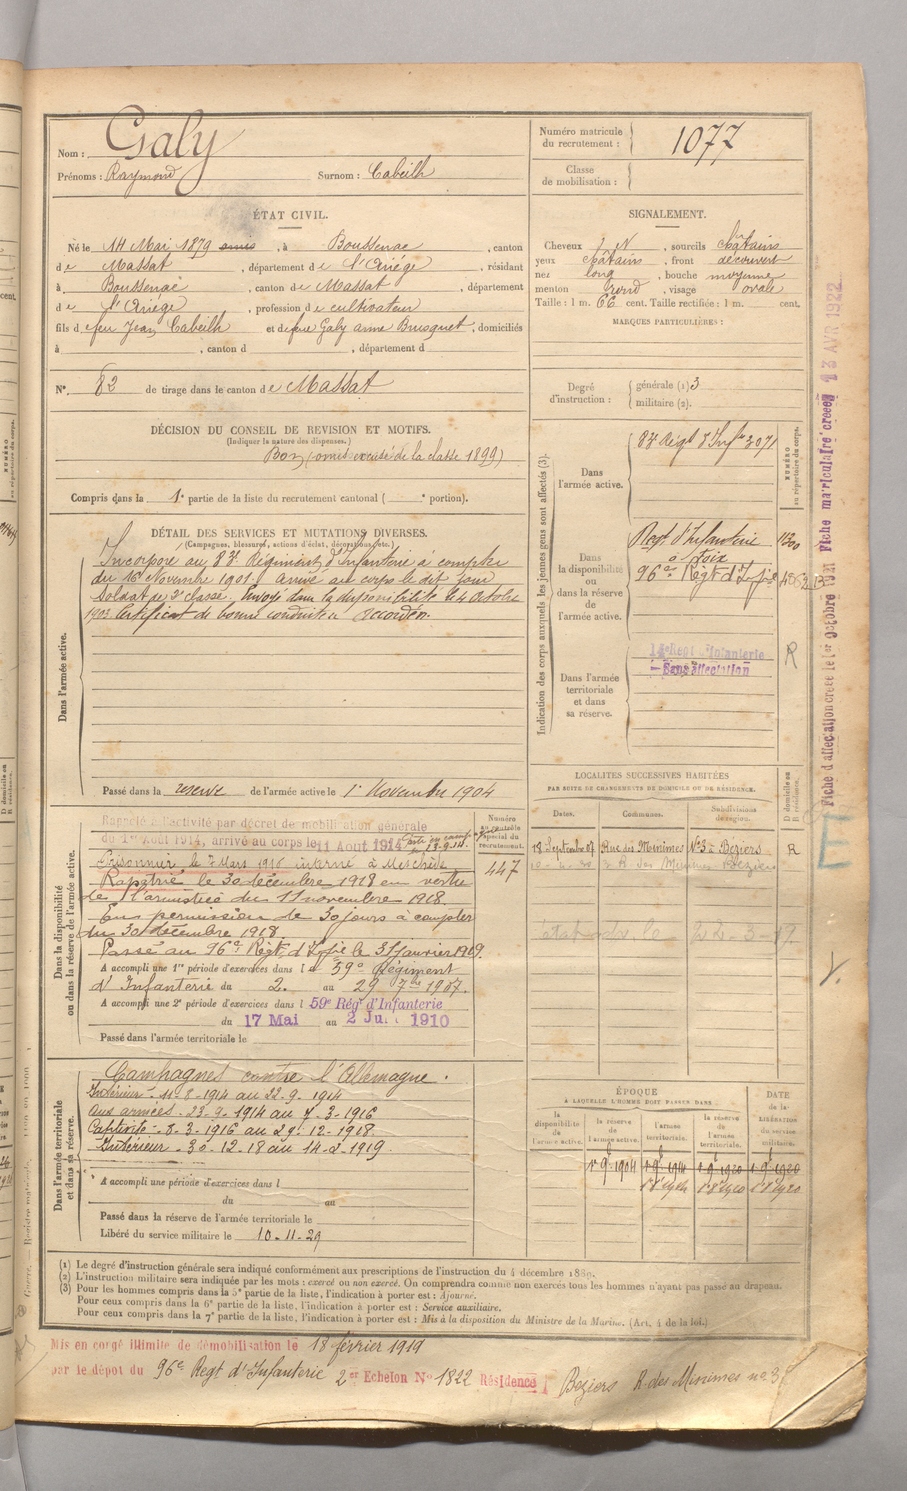 Nom : Galy
Prénoms : Raymond Surnom : Cabeilh
Numéro matricule du recrutement : 1077
Classe de mobilisation :
ÉTAT CIVIL.
Né le 14 Mai 1879 omis, à Boussenac, canton
de Massat, département de l'Ariége, résidant
à Boussenac, canton de Massat, département
de l'Ariége, profession de cultivateur
fils de feu Jean Cabeilh et de feue Galy anne Busquet, domiciliés
à , canton d , département d
N°. 82 de tirage dans le canton de Massat
SIGNALEMENT.
Cheveux N, sourcils châtains
yeux châtains, front découvert
nez long, bouche moyenne
menton rond, visage ovale
Taille : 1 m. 66 cent. Taille rectifiée : 1 m. cent.
MARQUES PARTICULIÈRES :
Degré d'instruction : générale (1) 3
militaire (2).
DÉCISION DU CONSEIL DE REVISION ET MOTIFS.
(Indiquer la nature des dispenses.)
Bon (omis excusé de la classe 1899)
Compris dans la 1e partie de la liste du recrutement cantonal ( portion).
DÉTAIL DES SERVICES ET MUTATIONS DIVERSES.
(Campagnes, blessures, actions d'éclat, décorations, etc.)
Dans l'armée active.
Incorporé au 83e Régiment d'Infanterie à compter
du 16 Novembre 1901. arrivé au corps le dit jour
soldat de 2e classe. Envoyé dans la disponibilité le 4 Octobre
1903 Certificat de bonne conduite accordé.
Passé dans la réserve de l'armée active le 1er Novembre 1904
Indication des corps auxquels les jeunes gens sont affectés (3).
NUMÉRO au répertoire du corps.
Dans l'armée active.
83e Régt d'Infie 3071
Dans la disponibilité ou dans la réserve de l'armée active.
Regt d'Infanterie
à Foix
96e Régt d'Infie
Dans l'armée territoriale et dans sa réserve.
Régt d'Infanterie
Sans affectation
R
Fiche d'affectation créée le 1er Octobre
Fiche matriculaire créée 13 AVR 1922
LOCALITÉS SUCCESSIVES HABITÉES
PAR SUITE DE CHANGEMENTS DE DOMICILE OU DE RÉSIDENCE.
Dates. Communes. Subdivisions de région. D domicile ou R résidence.
18 Septembre 07 Rue des Minimes N°3 à Béziers R
22-3-
Dans la disponibilité ou dans la réserve de l'armée active.
Numéro au contrôle spécial du recrutement.
447
Rappelé à l'activité par décret de mobilisation générale
du 1er Août 1914, arrivé au corps le 11 Août 1914
Prisonnier le 7 Mars 1916 interné à Meschède
Rapatrié le 30 décembre 1918 en vertu
de l'armistice du 11 novembre 1918.
En permission de 30 jours à compter
du 30 décembre 1918.
Passé au 96e Régt d'Infie le 31 Janvier 1919.
A accompli une 1re période d'exercices dans le 59e Régiment
d'Infanterie du 2. au 29 7bre 1907.
A accompli une 2e période d'exercices dans l 59e Rég. d'Infanterie
du 17 Mai au 2 Jui 1910
Passé dans l'armée territoriale le
Dans l'armée territoriale et dans sa réserve.
Campagnes contre l'Allemagne.
Intérieur - 11-8-1914 au 22-9-1914
aux armées - 23-9-1914 au 7-3-1916
Captivité - 8-3-1916 au 29-12-1918
Intérieur - 30-12-18 au 14-2-1919
A accompli une période d'exercices dans l
du au
Passé dans la réserve de l'armée territoriale le
Libéré du service militaire le 10-11-29
ÉPOQUE
A LAQUELLE L'HOMME DOIT PASSER DANS
la disponibilité de l'armée active. la réserve de l'armée active. l'armée territoriale. la réserve de l'armée territoriale. DATE de la LIBÉRATION du service militaire.
1er 9bre 1904
(1) Le degré d'instruction générale sera indiqué conformément aux prescriptions de l'instruction du 4 décembre 1889.
(2) L'instruction militaire sera indiquée par les mots : exercé ou non exercé. On comprendra comme non exercés tous les hommes n'ayant pas passé au drapeau.
(3) Pour les hommes compris dans la 5e partie de la liste, l'indication à porter est : Ajourné.
Pour ceux compris dans la 6e partie de la liste, l'indication à porter est : Service auxiliaire,
Pour ceux compris dans la 7e partie de la liste, l'indication à porter est : Mis à la disposition du Ministre de la Marine. (Art. 4 de la loi.)
Mis en congé illimité de démobilisation le 18 février 1919
par le dépôt du 96e Regt d'Infanterie 2e Echelon N° 1822 Résidence Beziers R. des Minimes no 3